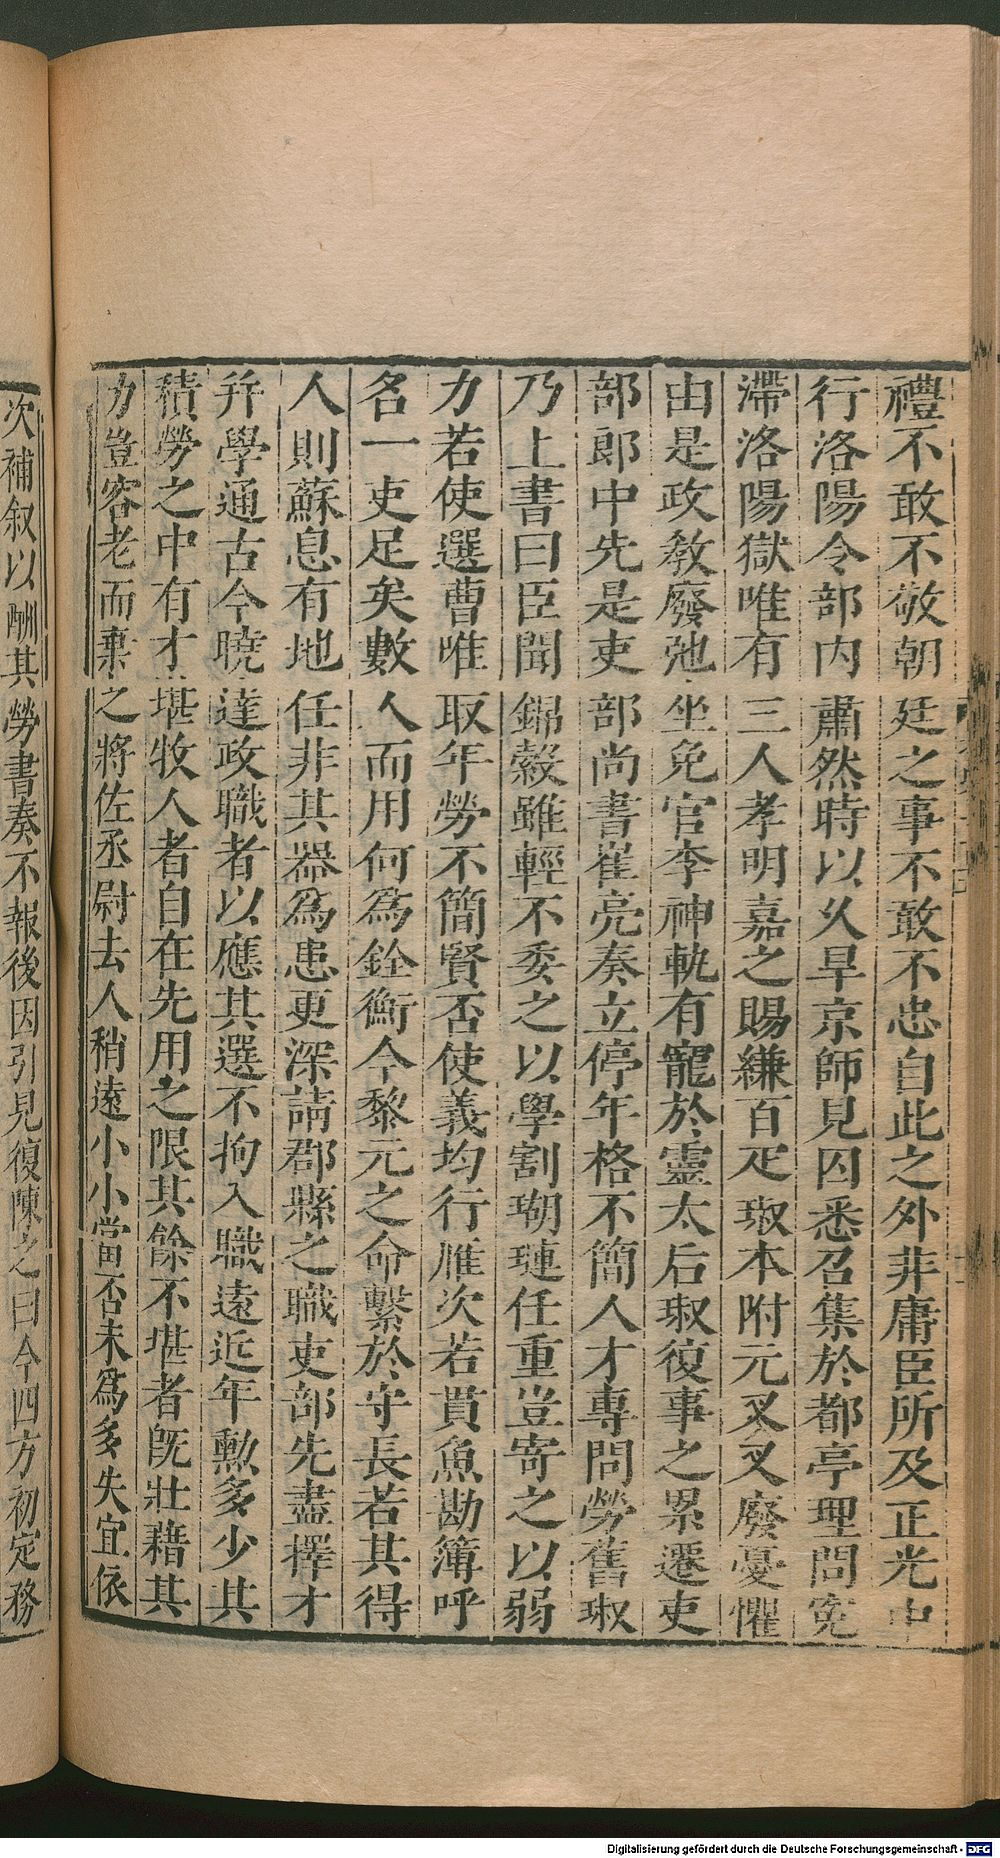 禮不敢不敬朝廷之事不敢不忠自此之外非庸臣所及正光中
行洛陽令部內肅然時以久旱京師見囚悉召集於都亭理問冤
滯洛陽獄唯有三人孝明嘉之賜縑百疋琡本附元叉叉廢憂懼
由是政教廢弛坐免官李神軌有寵於靈太后琡復事之累遷吏
部郎中先是吏部尚書崔亮奏立停年格不簡人才專問勞舊琡
乃上書曰臣聞錦縠雖輕不委之以學割瑚璉任重豈寄之以弱
力若使選曹唯取年勞不簡賢否使義均行雁次若貫魚勘簿呼
名一吏足矣數人而用何爲銓衡今黎元之命繫於守長若其得
人則蘇息有地任非其器爲患更深請郡縣之職吏部先盡擇才
幷學通古今曉達政職者以應其選不拘入職遠近年勲多少其
積勞之中有才堪牧人者自在先用之限其餘不堪者旣壯藉其
力豈容老而棄之將佐丞尉去人稍遠小小當否未爲多失宜依
次補叙以酬其勞書奏不報後因引見復陳之曰今四方初定務
Digitalisierung gefördert durch die Deutsche Forschungsgemeinschaft - DFG